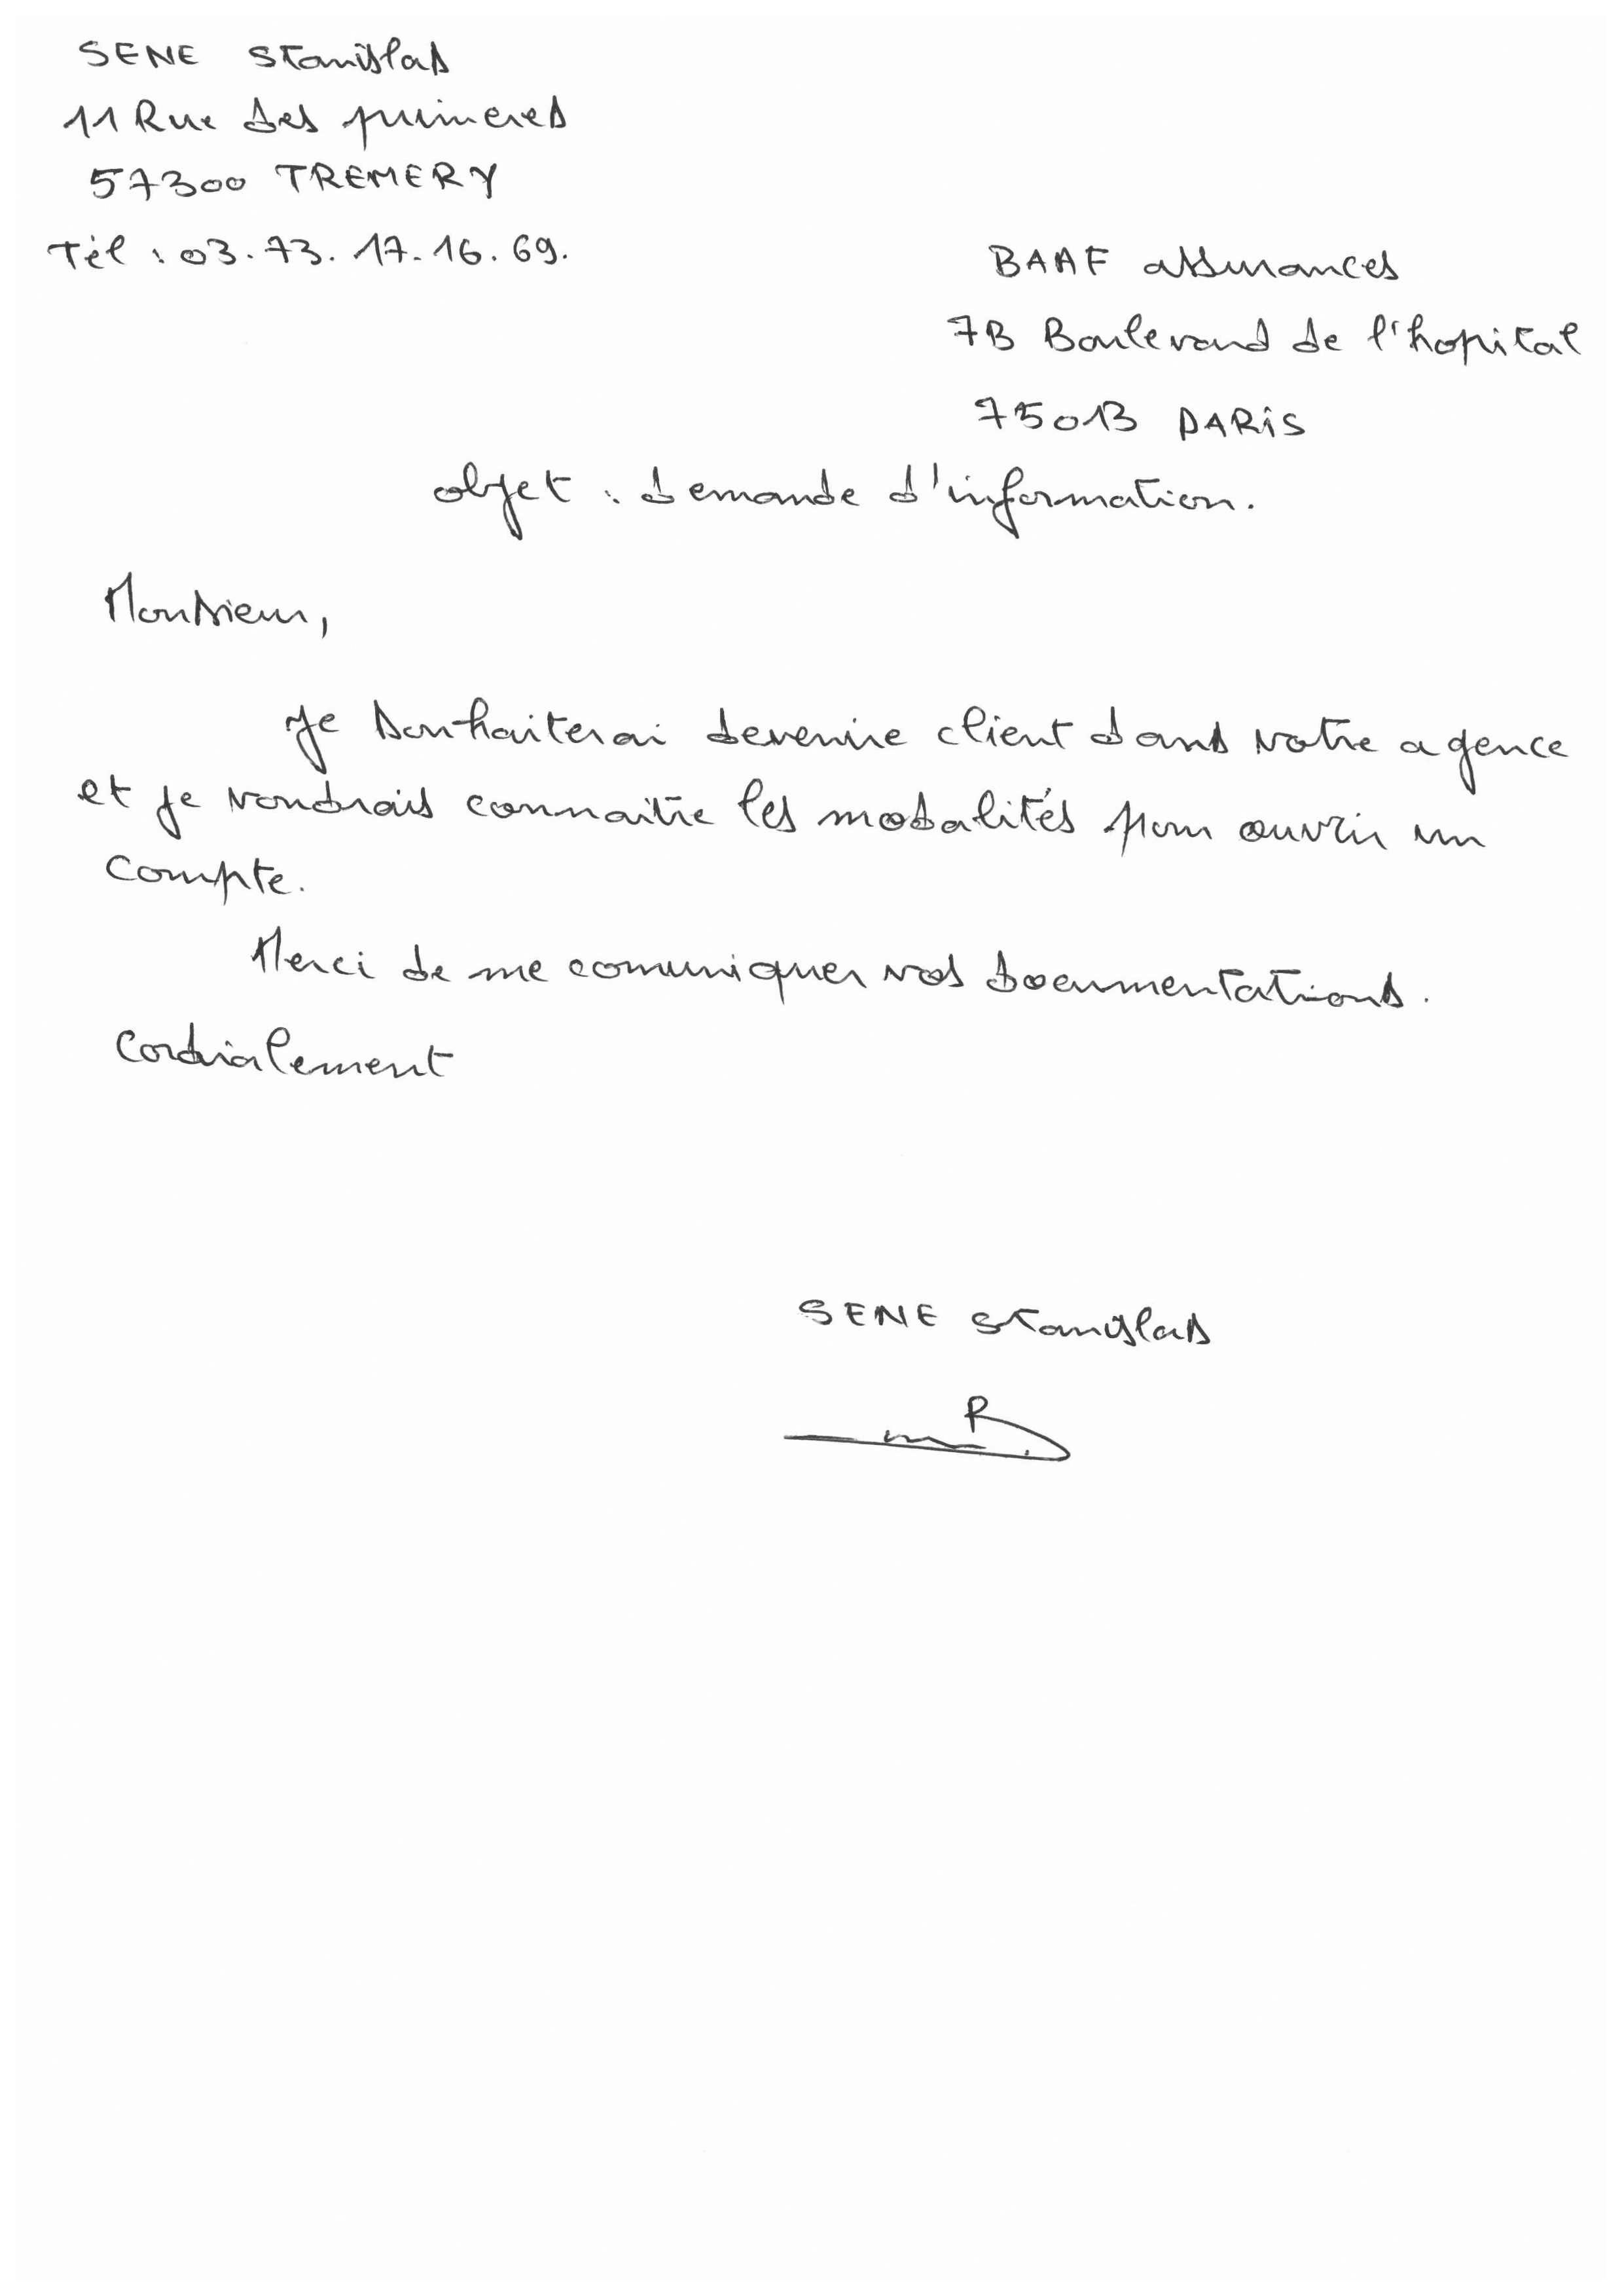 SENE Stanislas
11 Rue des primeres
57300 TREMERY
Tél : 03.73.17.16.69.
BAAF assurances
7B Boulevard de l'hopital
75013 PARIS
objet : demande d'information.
Monsieur,
Je souhaiterai devenire client dans votre agence
et je voudrais connaitre les modalités pour ouvrir un
compte.
Merci de me comuniquer vos documentations.
Cordialement
SENE Stanislas